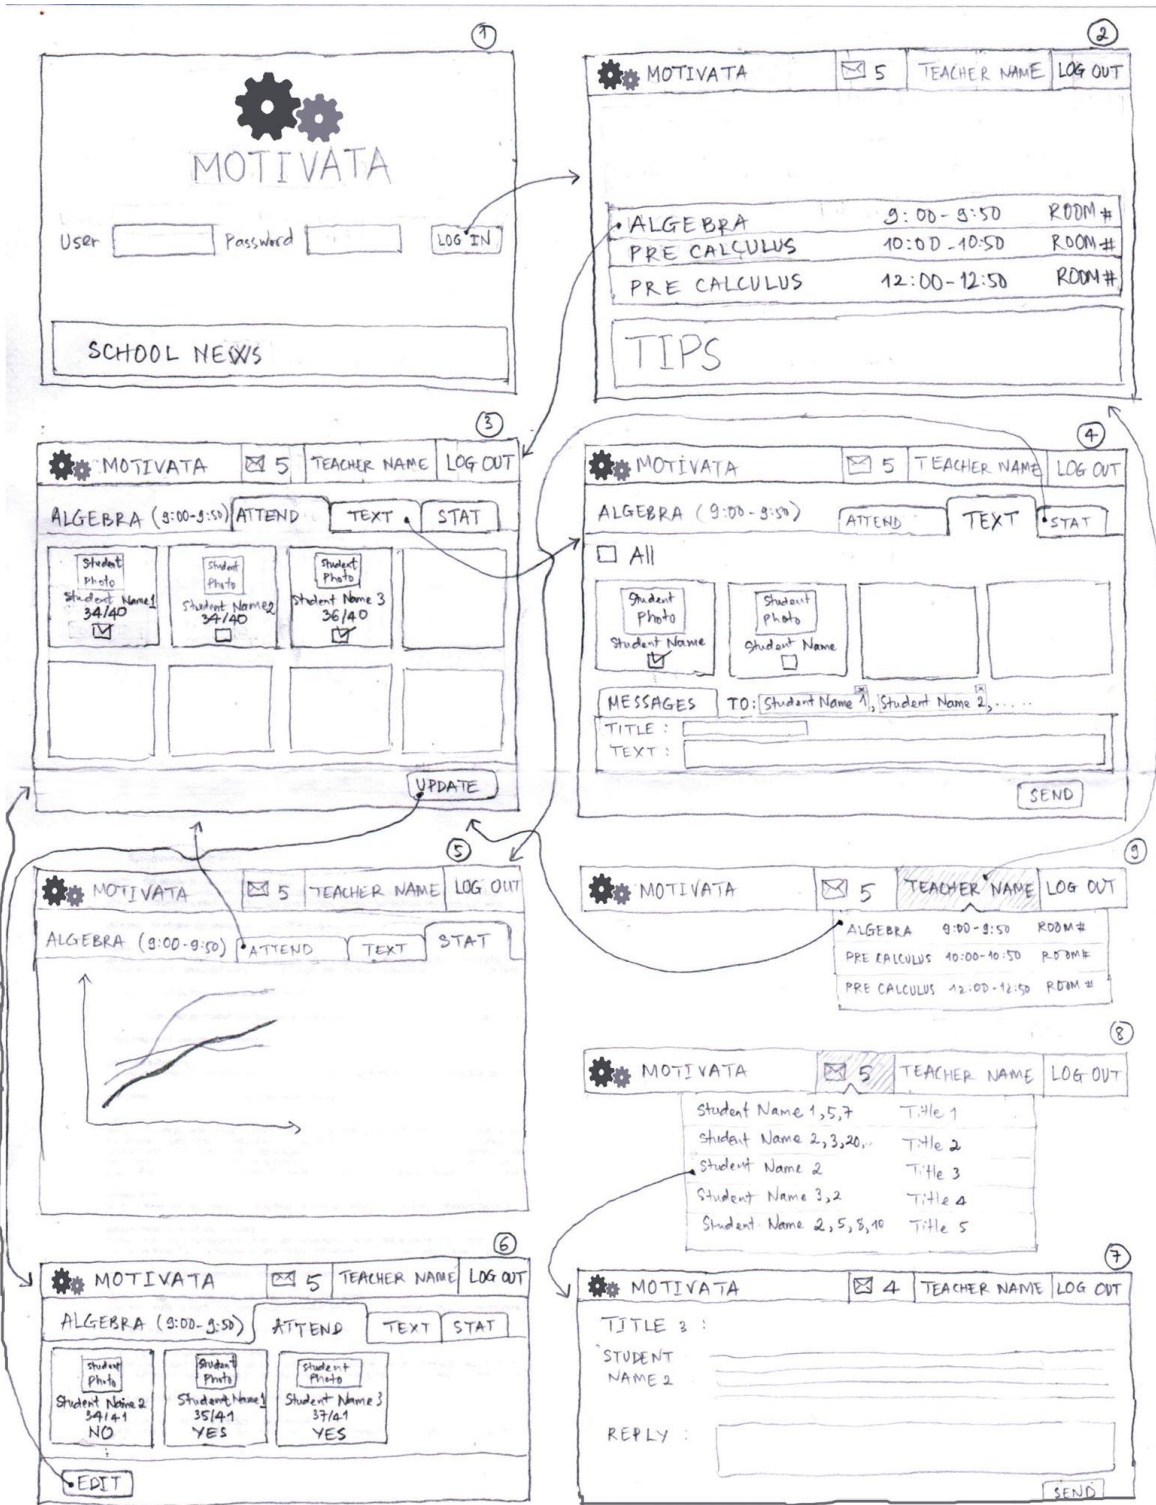 1
MOTIVATA
User Password LOG IN
SCHOOL NEWS
2
MOTIVATA 5 TEACHER NAME LOG OUT
ALGEBRA 9:00-9:50 ROOM #
PRE CALCULUS 10:00-10:50 ROOM #
PRE CALCULUS 12:00-12:50 ROOM #
TIPS
3
MOTIVATA 5 TEACHER NAME LOG OUT
ALGEBRA (9:00-9:50) ATTEND TEXT STAT
Student Student Student
Photo Photo Photo
Student Name1 Student Name2 Student Name 3
34/40 34/40 36/40
UPDATE
4
MOTIVATA 5 TEACHER NAME LOG OUT
ALGEBRA (9:00-9:50) ATTEND TEXT STAT
All
Student Student
Photo Photo
Student Name Student Name
MESSAGES TO: Student Name 1, Student Name 2, .....
TITLE :
TEXT :
SEND
5
MOTIVATA 5 TEACHER NAME LOG OUT
ALGEBRA (9:00-9:50) ATTEND TEXT STAT
9
MOTIVATA 5 TEACHER NAME LOG OUT
ALGEBRA 9:00-9:50 ROOM #
PRE CALCULUS 10:00-10:50 ROOM #
PRE CALCULUS 12:00-12:50 ROOM #
8
MOTIVATA 5 TEACHER NAME LOG OUT
Student Name 1,5,7 Title 1
Student Name 2,3,20,.. Title 2
Student Name 2 Title 3
Student Name 3,2 Title 4
Student Name 2,5,8,10 Title 5
6
MOTIVATA 5 TEACHER NAME LOG OUT
ALGEBRA (9:00-9:50) ATTEND TEXT STAT
Student Student Student
Photo Photo Photo
Student Name 2 Student Name1 Student Name 3
34/41 35/41 37/41
NO YES YES
EDIT
7
MOTIVATA 4 TEACHER NAME LOG OUT
TITLE 3 :
STUDENT
NAME 2
REPLY :
SEND